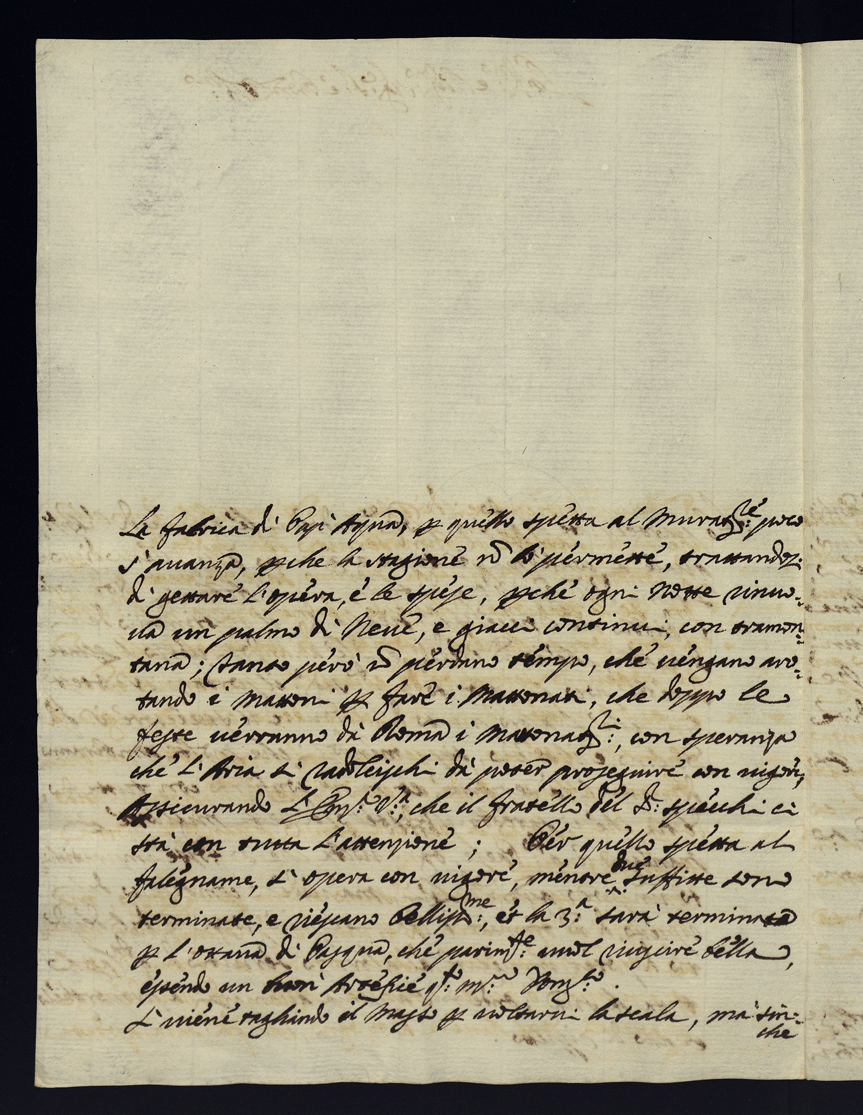 La fabrica di Papi Aqua, p quello spetta al Murat.re poco
s'auanza, pche la stagione nō lo permette, trattandosi
di gettare l'opera, é le spese, pché ogni notte rinuo=
ua un palmo di Neue, e giacci continui, con tramon=
tana; tanto però nō perdano tempo, ché uengano aro=
tando i mattoni p fare i Mattonati, che doppo le
feste uerranno dà Roma i Mattonat.ri, con speranza
ché l'Aria si radolcischi dà poter proseguire con uigore,
Assicurando L'Em.a V.ra, che il fratello del D: specchi ci
stà con tutta l'attenzione; Pér quello spetta al
falegname, si opera con uigore, mentre due suffitte sono
terminate, e riescano belliss.me, ét la 3.a sarà terminata
p l'ottaua di Pasqua, ché parim.te uuol riuscire bella,
essendo un buon Artefice q.to m.ro Dom.co.
Si uiene tagliando il Masso p uoltarui la scala, mà sin=
che